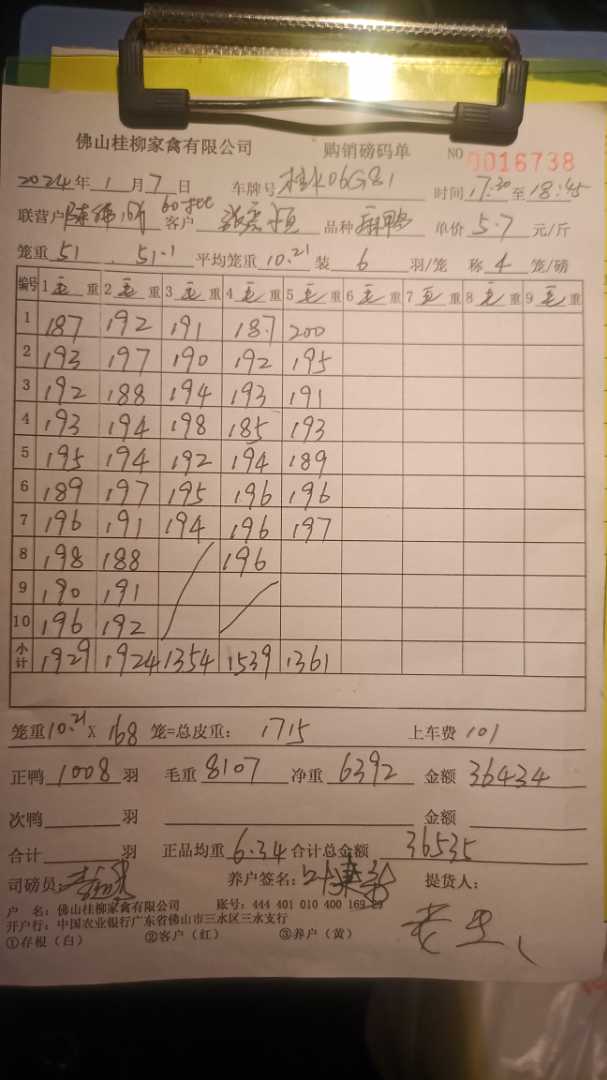 佛山桂柳家禽有限公司 购销磅码单 NO 0016738
2024年1月7日 车牌号桂K06G81 时间17:30至18:45
联营户 客户 品种麻鸭 单价5.7元/斤
笼重51 . 51.1 平均笼重10.21装6羽/笼 称4笼/磅
编号 1毛重 2毛重 3毛重 4毛重 5毛重 6毛重 7毛重 8毛重 9毛重
1 187 192 191 187 200
2 193 197 190 192 195
3 192 188 194 193 191
4 193 194 198 185 193
5 195 194 192 194 189
6 189 197 195 196 196
7 196 191 194 196 197
8 198 188 196
9 190 191
10 196 192
小计 1929 1924 1354 1539 1361
笼重10.21X168笼=总皮重:1715 上车费101
正鸭1008羽 毛重8107 净重6392 金额36434
次鸭 羽 金额
合计 羽 正品均重6.34合计总金额36535
司磅员: 养户签名: 提货人:
户 名:佛山桂柳家禽有限公司 账号:444 401 010 400 169
开户行:中国农业银行广东省佛山市三水区三水支行
①存根(白) ②客户(红) ③养户(黄)